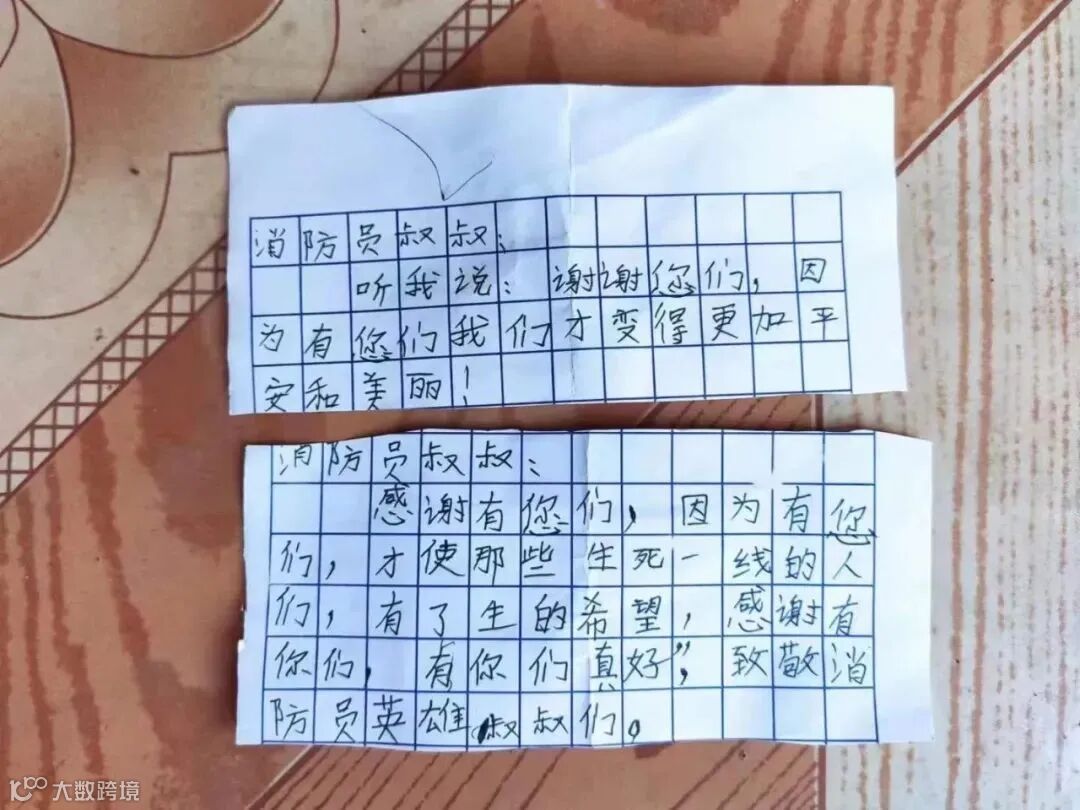 消防员叔叔：
听我说：谢谢您们，因
为有您们我们才变得更加平
安和美丽！
消防员叔叔：
感谢有您们，因为有您
们，才使那些生死一线的人
们，有了生的希望，感谢有
你们，有你们真好”，致敬消
防员英雄叔叔们。
大数跨境